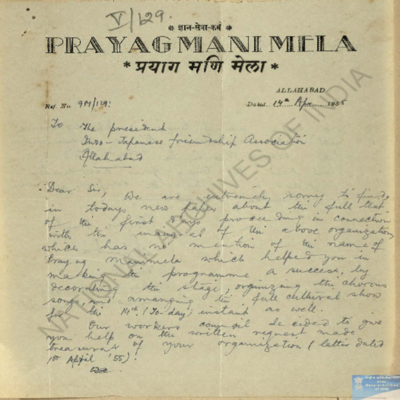 V/129
* ज्ञान-सेवा-कर्म *
PRAYAG MANI MELA
* प्रयाग मणि मेला *
ALLAHABAD
Ref. No. Dated 14th Apr 1955
To The president
Indo-Japanese friendship Association
Allahabad
Dear Sir, We are extremely sorry to find,
in todays news paper about the full text
of the first days proceeding in connection
with the of the above organization
which has no mention of the name of
Prayag Manimela which helped you in
making the programme a success, by
decorating the stage, organizing the chorous
songs, and arranging the full cultural show
for the 14th (To day) instant as well.
Our workers council decided to give
you help on the written request made
treasurer of your organization (letter dated
1st April '55)!
NATIONAL ARCHIVES OF INDIA